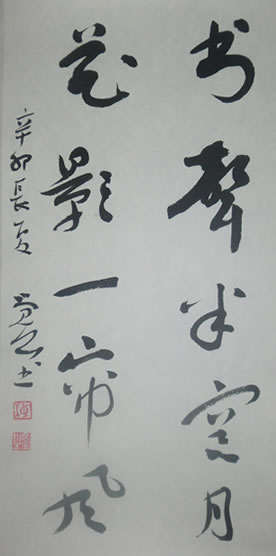 书聲半窗月
花影一帘风
辛卯長夏 书